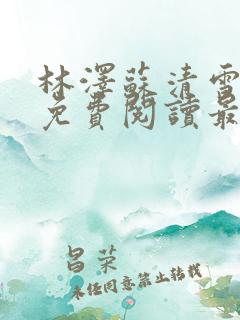 林澤蘇清雪
免費閱讀最
昌荣
未经同意禁止转载